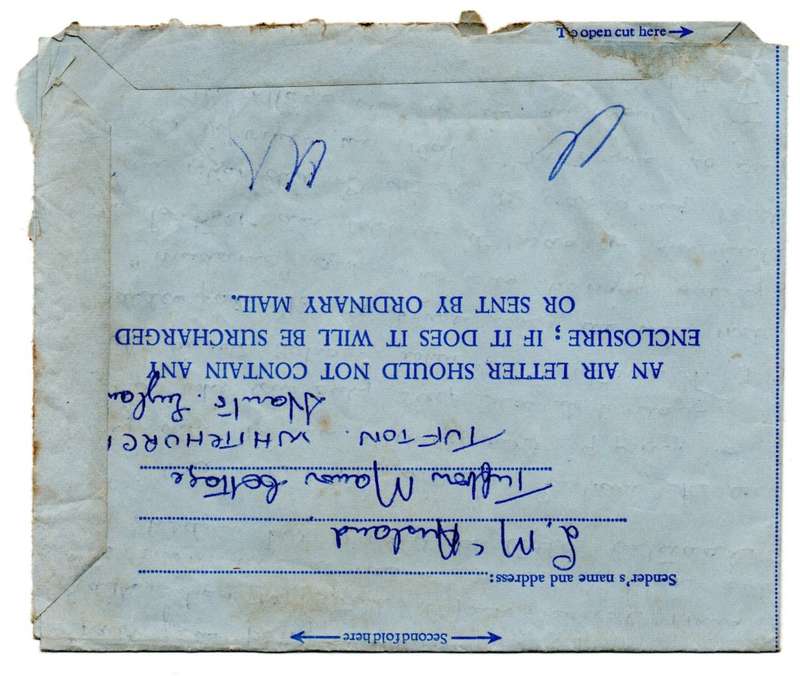 To open cut here
Second fold here
Sender's name and address:
Tufton Manor Cottage
TUFTON. WHITCHURC
Hants. Englan
AN AIR LETTER SHOULD NOT CONTAIN ANY
ENCLOSURE; IF IT DOES IT WILL BE SURCHARGED
OR SENT BY ORDINARY MAIL.